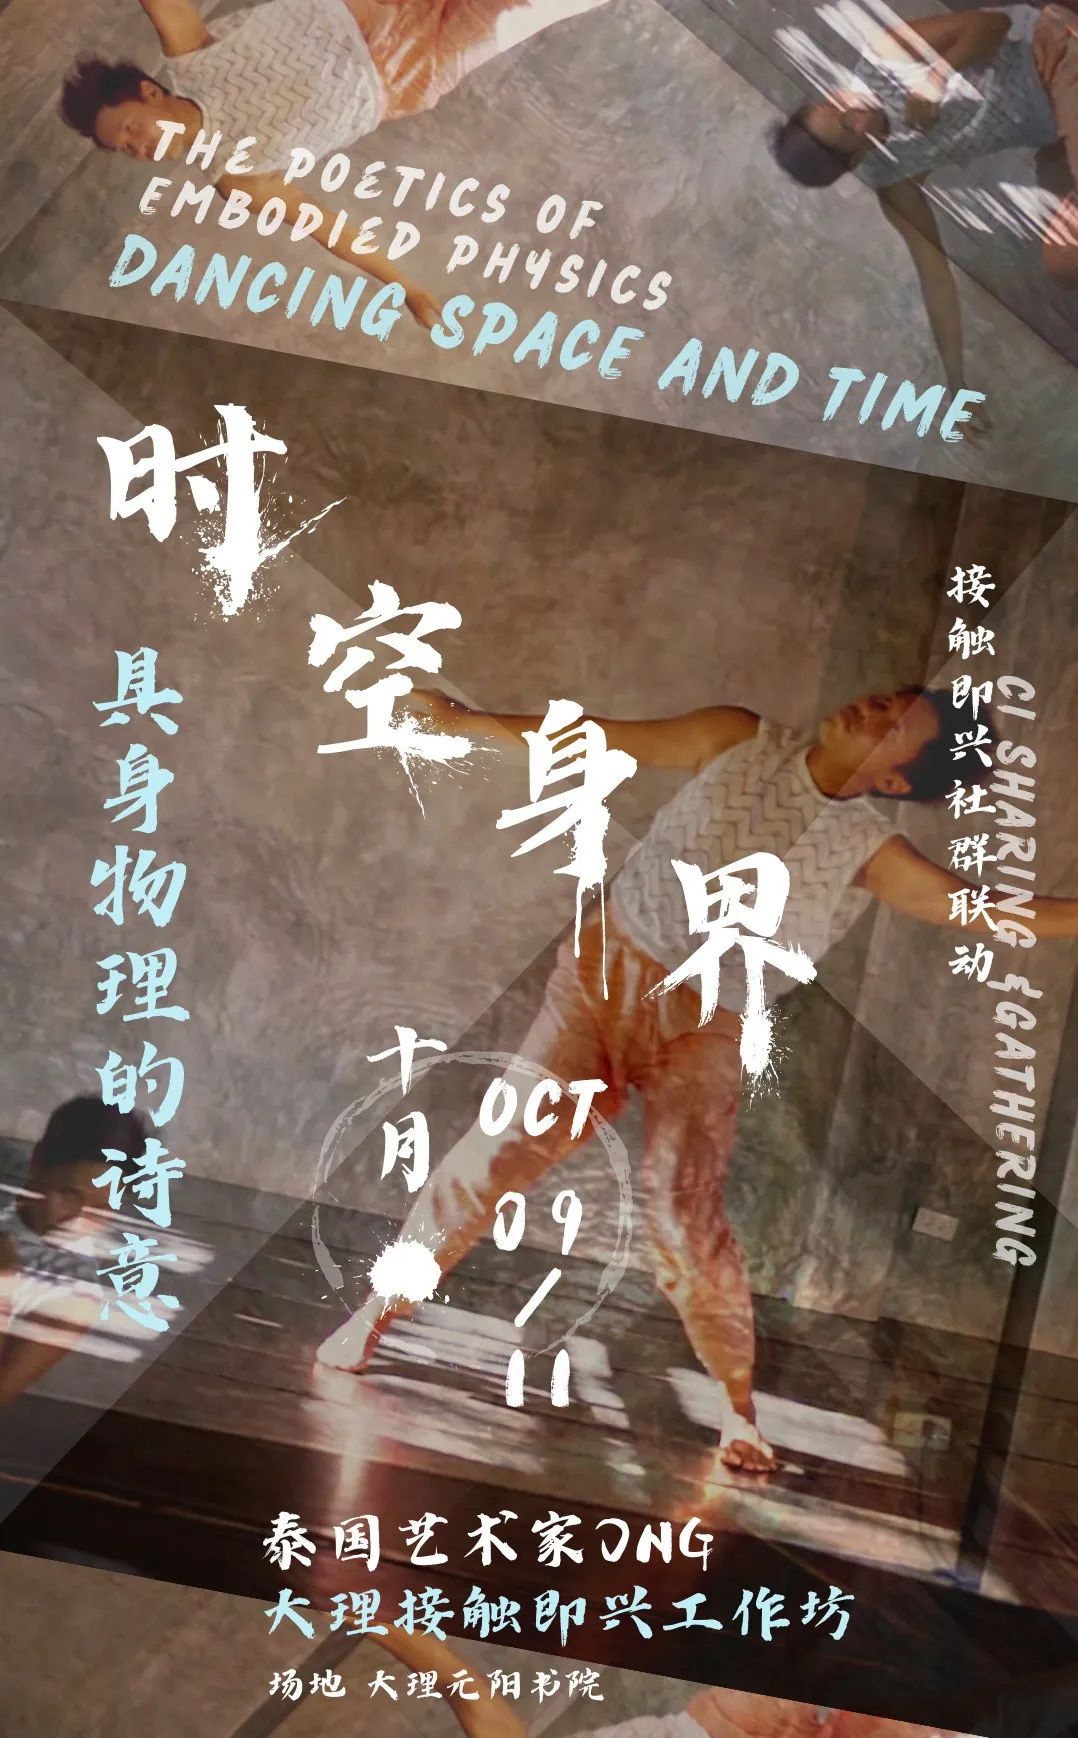 THE POETICS OF
EMBODIED PHYSICS
DANCING SPACE AND TIME
时空身界
具身物理的诗意
接触即兴社群联动
CI SHARING & GATHERING
十月
OCT
09
/
11
泰国艺术家ONG
大理接触即兴工作坊
场地 大理元阳书院